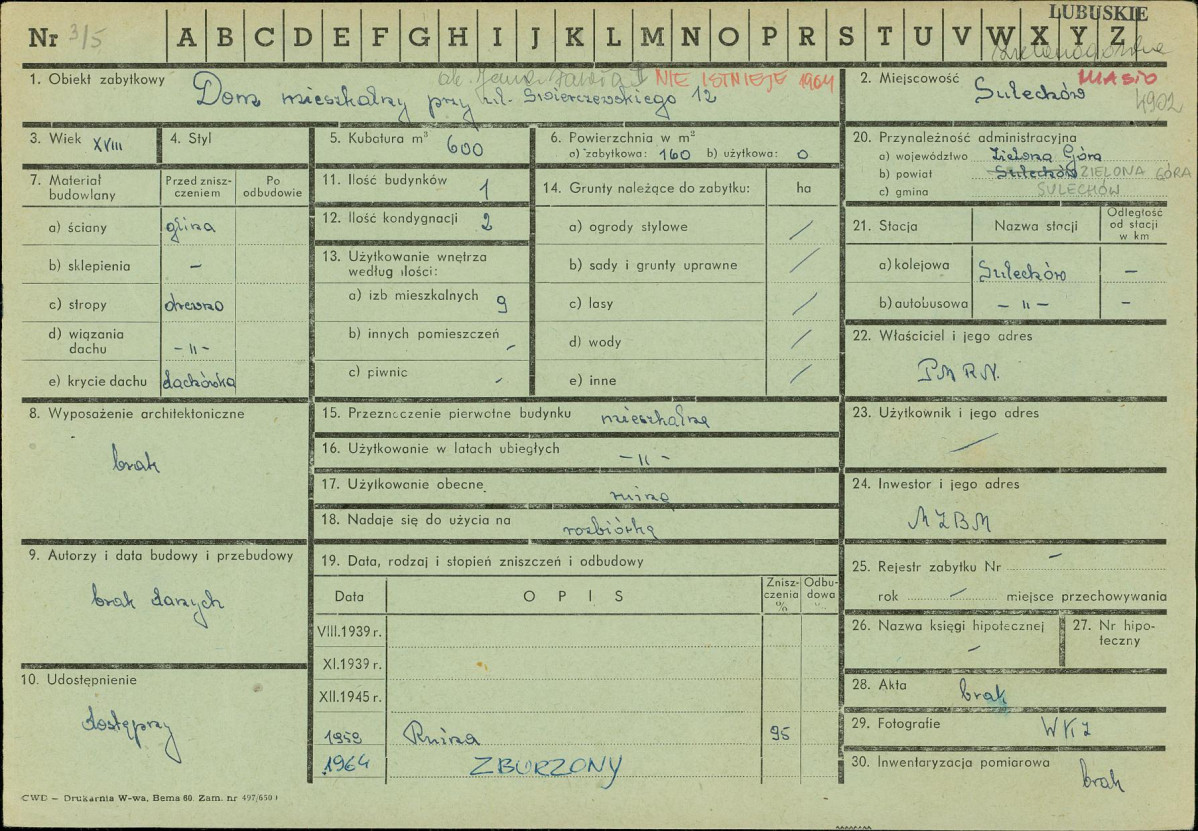 LUBUSKIE
Nr 3/5 A B C D E F G H I J K L M N O P R S T U V W X Y Z
1. Obiekt zabytkowy NIE ISTNIEJE 1964
Dom mieszkalny przy ul. Świerczewskiego 12
2. Miejscowość MIASTO
Sulechów 4902
3. Wiek XVIII
4. Styl
5. Kubatura m³ 600
6. Powierzchnia w m²
a) zabytkowa: 160 b) użytkowa: 0
20. Przynależność administracyjna
a) województwo Zielona Góra
b) powiat Sulechów ZIELONA GÓRA
c) gmina SULECHÓW
7. Materiał budowlany
Przed zniszczeniem
Po odbudowie
a) ściany glina
b) sklepienia –
c) stropy drewno
d) wiązania dachu – 11 –
e) krycie dachu dachówka
8. Wyposażenie architektoniczne
brak
9. Autorzy i data budowy i przebudowy
brak danych
10. Udostępnienie
dostępny
11. Ilość budynków 1
12. Ilość kondygnacji 2
13. Użytkowanie wnętrza
według ilości:
a) izb mieszkalnych 9
b) innych pomieszczeń -
c) piwnic -
14. Grunty należące do zabytku: ha
a) ogrody stylowe /
b) sady i grunty uprawne /
c) lasy /
d) wody /
e) inne /
15. Przeznaczenie pierwotne budynku mieszkalne
16. Użytkowanie w latach ubiegłych – 11 –
17. Użytkowanie obecne ruina
18. Nadaje się do użycia na rozbiórkę
19. Data, rodzaj i stopień zniszczeń i odbudowy
Data OPIS Zniszczenia % Odbudowa %
VIII.1939 r.
XI.1939 r.
XII.1945 r.
1959 Ruina 95
1964 ZBURZONY
21. Stacja Nazwa stacji Odległość od stacji w km
a) kolejowa Sulechów –
b) autobusowa – 11 – –
22. Właściciel i jego adres
PMRN.
23. Użytkownik i jego adres
/
24. Inwestor i jego adres
MZBM
25. Rejestr zabytku Nr –
rok – miejsce przechowywania
26. Nazwa księgi hipotecznej
–
27. Nr hipoteczny
28. Akta brak
29. Fotografie WKZ
30. Inwentaryzacja pomiarowa
brak
CWD – Drukarnia W-wa, Bema 60. Zam. nr 497/650